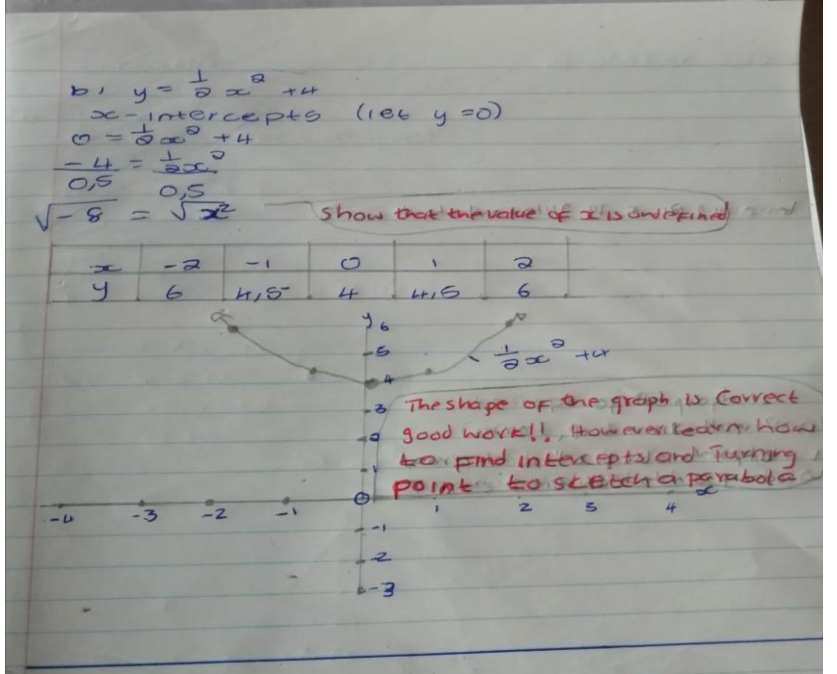 b, y = 1/2 x² + 4
x-intercepts (let y = 0)
0 = 1/2 x² + 4
-4/0,5 = 1/2 x²/0,5
√-8 = √x²
show that the value of x is undefined
x -2 -1 0 1 2
y 6 4,5 4 4,5 6
y 6
5
1/2 x² + 4
4
The shape of the graph is correct
3
good work!!, However learn how
2
to find intercepts and Turning
1
point to sketch a parabola
0
x
-4 -3 -2 -1 1 2 3 4
-1
-2
-3